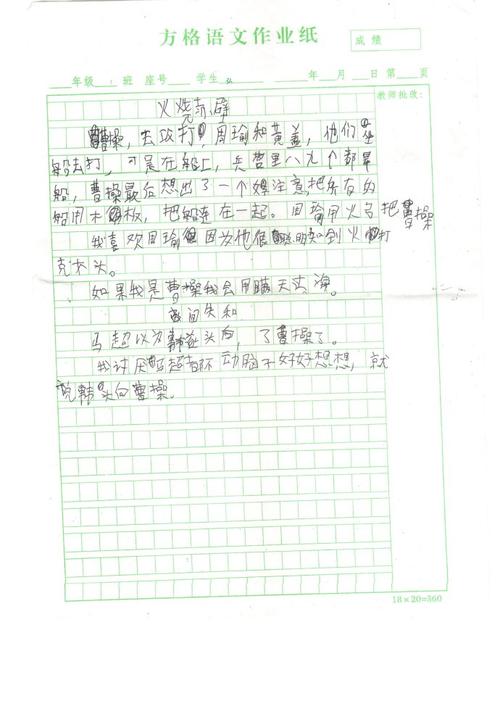 方格语文作业纸
成绩
年级 班 座号 学生 年 月 日 第 页
教师批改:
火烧赤壁
曹操,去攻打,周瑜和黄盖,他们坐
船去打,可是在船上,兵营里八九个都晕
船,曹操最后想出了一个 注意把所有的
船用木板,把船连在一起。周瑜用火 把曹操
我喜欢周瑜因为他很聪明知到火 打
克木头。
如果我是曹操我会用瞒天过海。
间失和
马超以为韩遂头向,了曹操了。
我讨厌马超都不动脑不好好想想,就
说韩 头向曹操。
18×20=360